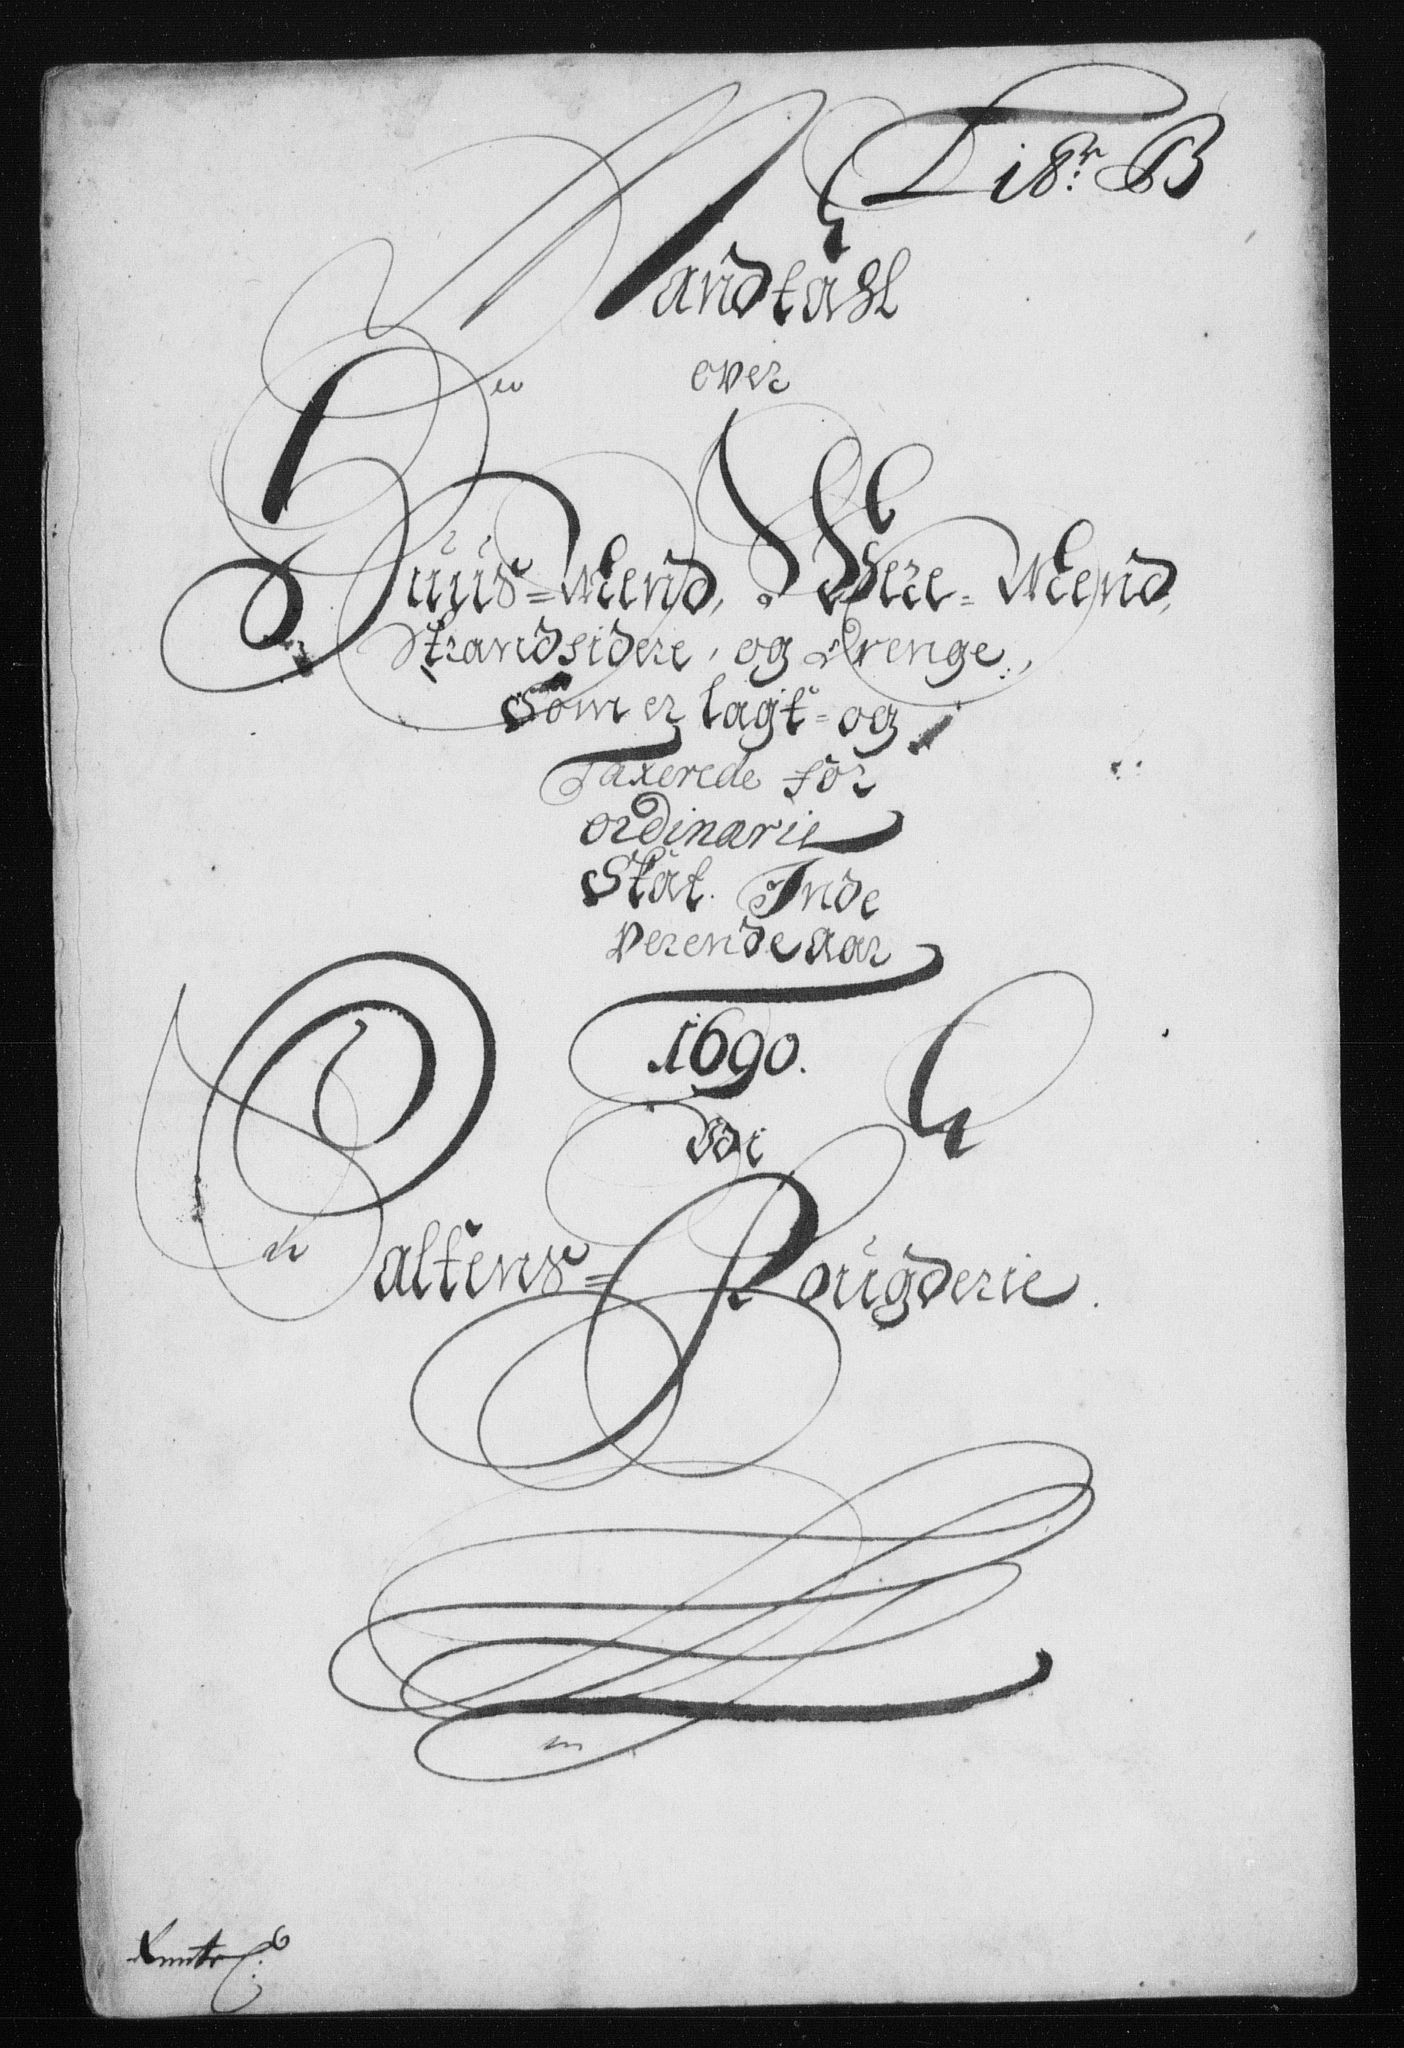 Lit:r B
Mandtahl
over
Huus=Mend, Were=Mend,
Strandsidere, og Drenge,
Som er lagt= og
Taxerede for
ordinarie
Skat. Inde
verende aar
1690.
Udi
Saltens= Fougderie.